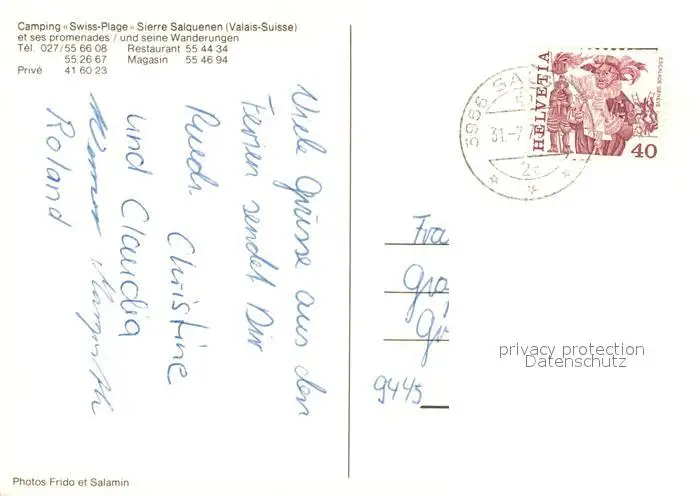 Camping «Swiss-Plage» Sierre Salquenen (Valais-Suisse)
et ses promenades / und seine Wanderungen
Tél. 027/55 66 08 Restaurant 55 44 34
55 26 67 Magasin 55 46 94
Privé 41 60 23
Viele Grüsse aus den
Ferien sendet Dir
Ruedi Christine
und Claudia
Roland
HELVETIA
ESCALADE GENÈVE
40
3956 SA
31.-7.7
Fra
Gra
9445
privacy protection
Datenschutz
Photos Frido et Salamin